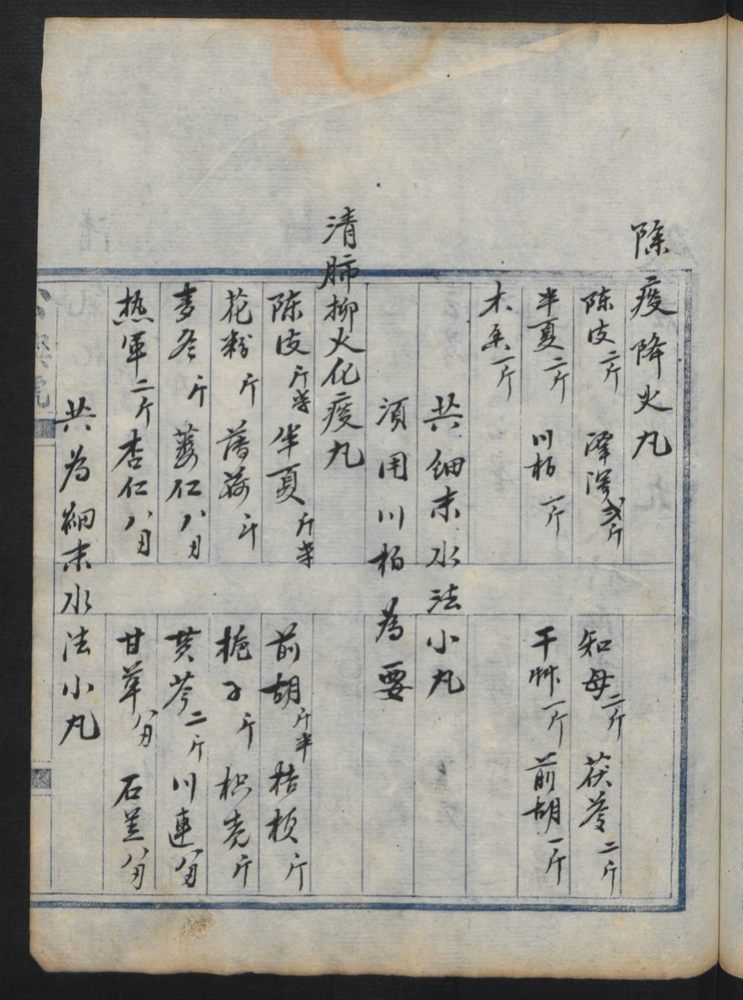 除痰降火丸
陈皮二斤 泽泻弍斤 知母二斤 茯苓二斤
半夏二斤 川柏一斤 干草一斤 前胡一斤
木香一斤
共細末水法小丸
須用川柏為要
清肺抑火化痰丸
陈皮斤半 半夏斤半 前胡斤半 桔梗斤
花粉斤 薄荷斤 梔子斤 枳壳斤
麦冬斤 蒌仁八刃 黄芩二斤 川連八刃
热軍二斤 杏仁八刃 甘草八刃 石羔八刃
共為細末水法小丸